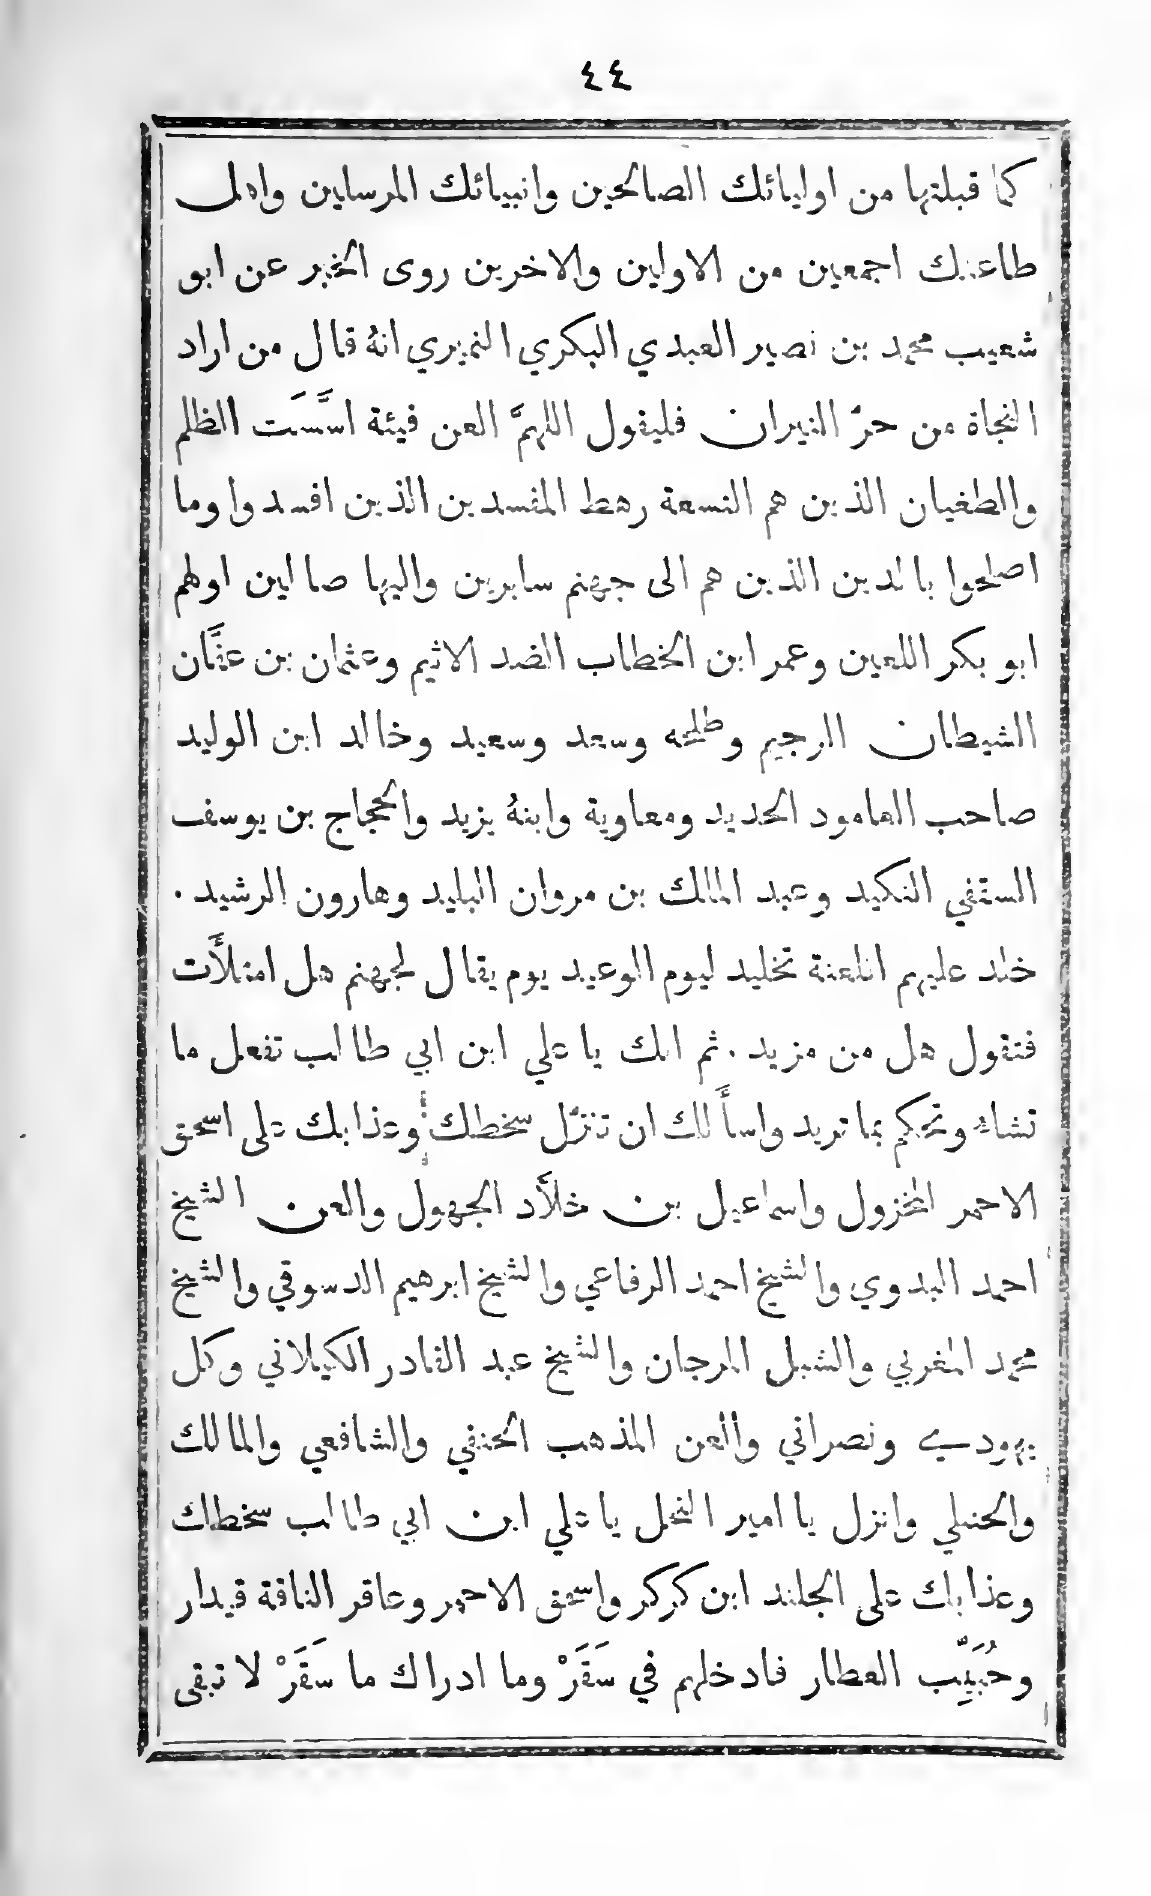 ٤٤
كما قبلتها من اوليائك الصالحين وانبيائك المرسلين واهل
طاعتك اجمعين من الاولين والاخرين روى الخبر عن ابو
شعيب محمد بن نصير العبدي البكري النميري انهُ قال من اراد
النجاة من حرّ النيران فليقول اللهمَّ العن فيئة اسَّسَت الظلم
والطغيان الذين هم التسعة رهط المفسدين الذين افسدوا وما
اصلحوا بالدين الذين هم الى جهنم سايرين واليها صالين اولهم
ابو بكر اللعين وعمر ابن الخطاب الضد الاثيم وعثمان بن عفَّان
الشيطان الرجيم وطلحه وسعد وسعيد وخالد ابن الوليد
صاحب العامود الحديد ومعاوية وابنهُ يزيد والحجاج بن يوسف
الستفي النكيد وعبد المالك بن مروان البليد وهارون الرشيد .
خلد عليهم اللعنة تخليد ليوم الوعيد يوم يقال لجهنم هل امتلأَت
فتقول هل من مزيد . ثم انك يا علي ابن ابي طالب تفعل ما
تشاء وتحكم بما تريد واسأَلك ان تنزّل سخطك وعذابك على اسحق
الاحمر المخزول واسماعيل بن خلاَّد الجهول والعن الشيخ
احمد البدوي والشيخ احمد الرفاعي والشيخ ابرهيم الدسوقي والشيخ
محمد المغربي والشبل المرجان والشيخ عبد القادر الكيلاني وكل
يهودي ونصراني والعن المذهب الحنفي والشافعي والمالك
والحنبلي وانزل يا امير النحل يا علي ابن ابي طالب سخطك
وعذابك على الجلند ابن كركر واسحق الاحمر وعاقر الناقة قيدار
وحُبَيِّب العطار فادخلهم في سَقَرْ وما ادراك ما سَقَرْ لا تبقى